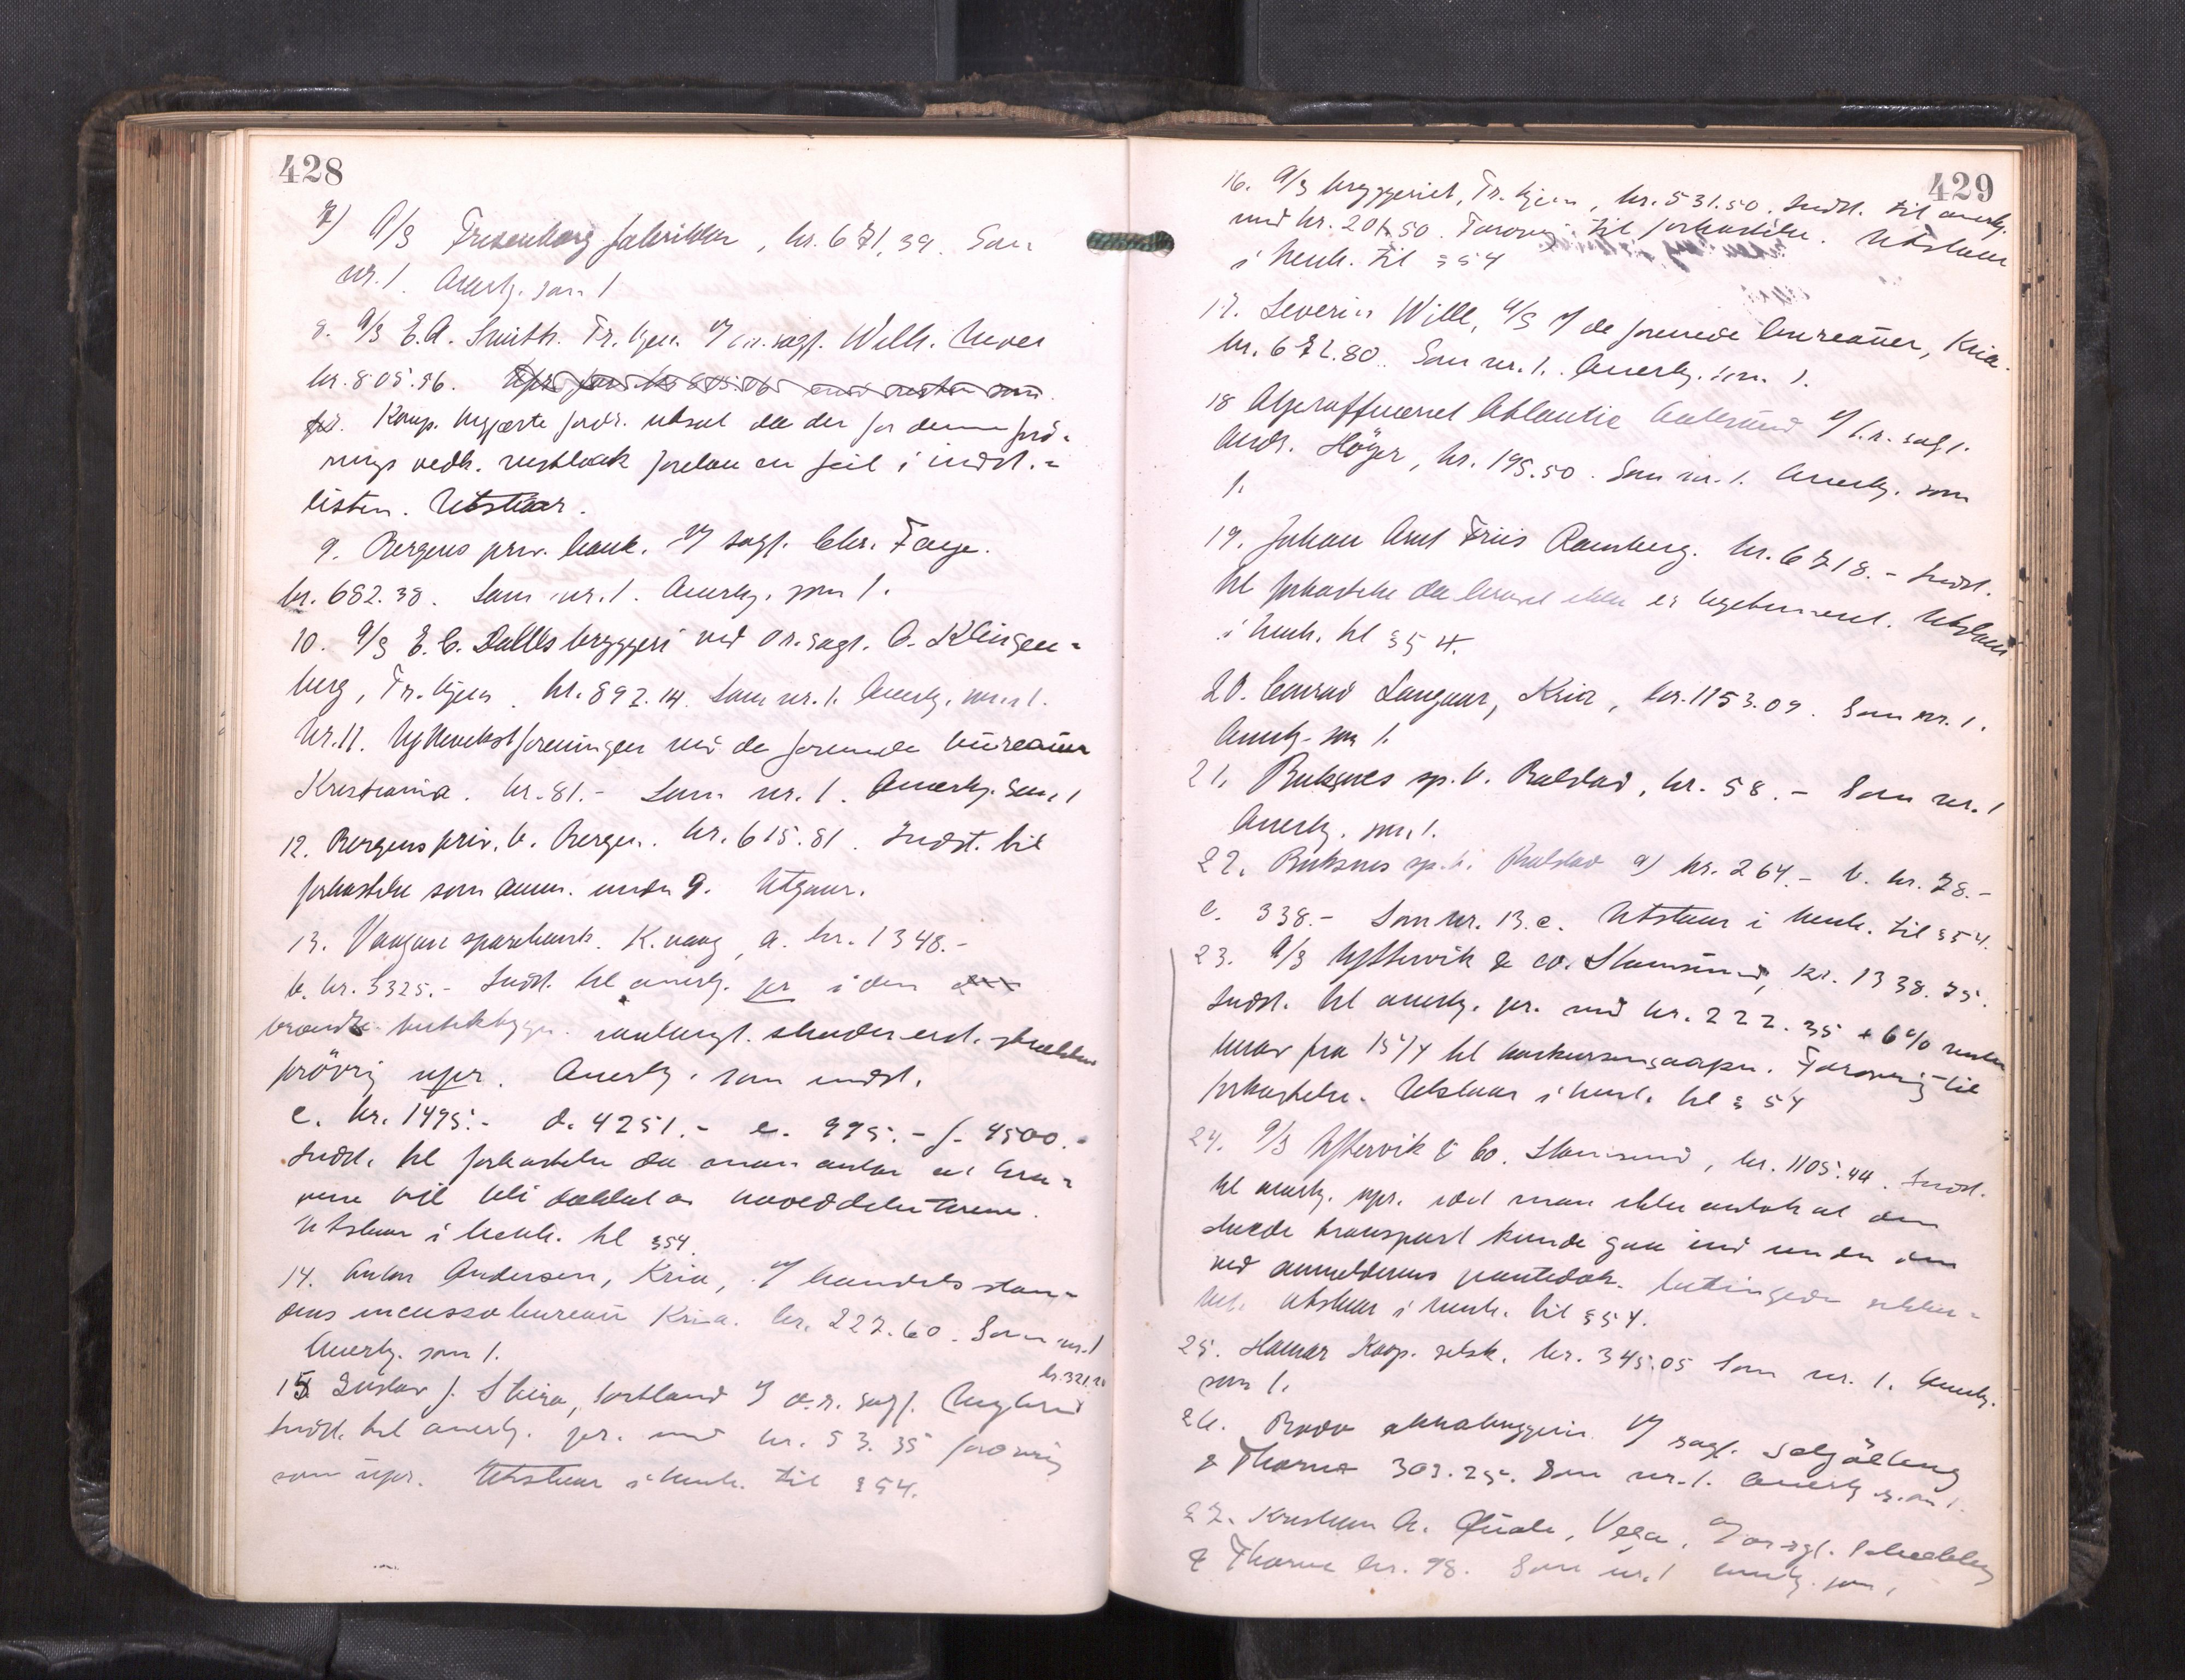 428
7) A/S Trezenborg fabrikker, kr. 671,39. Som
nr. 1. Anerk. som 1
8. A/S E.A. Smith. Tr.hjem v/ o.r.sagf. Wilh.
kr. 805.96.
Komp. begjærte fordr. utsat da der for denne ford-
rings vedk. foreligger en feil i indst.-
listen. Utstaar.
9. Bergens priv. bank. v/ sagf. Chr. Faye.
kr. 682.38. Som nr. 1. Anerk. som 1.
10. A/S E.C. Dahls bryggeri ved o.r.sagf. O. Klingen-
berg, Tr.hjem. kr. 892.14. Som nr. 1. Anerk. som 1.
Nr. 11. ved de forenede bureauer
Kristiania. kr. 81.- Som nr. 1. Anerk. som 1
12. Bergens priv. b. Bergen. kr. 615.81. Indst. til
forkastelse som anm. under 9. Utgaar.
13. Vaagan sparebank. K.vaag, a. kr. 1348.-
b. kr. 3325.- Indst. til anerk. pr i den
brændte
forøvrig upr. Anerk. som indst.
c. kr. 1495.- d. 4251.- e. 995.- f. 4500.-
Indst. til forkastelse da man antar at kra-
vene vil bli dækket av hoveddebitorene.
Utstaar i henh. til § 54.
14. Anton Andersen, Kria, v/ handelsstan-
dens incassobureau Kria. kr. 227.60. Som nr. 1
Anerk. som 1.
15 Gustav J. Sortland v/ o.r. sagf. kr. 321.
Indst. til anerk. pr. med kr. 53.35 forøvrig
som upr. Utstaar i henh. til § 54.
429
16. A/S bryggeriet, Tr.hjem, kr. 531.50. Indst. til anerk.
med kr. 201.50. Forøvrig til forkastelse. Utstaar
i henh. til § 54
17. Severin Wille, A/S v/ de forenede bureauer, Kria.
kr. 672.80. Som nr. 1. Anerk. som 1.
18 Atlantic Aalesund v/ o.r. sagf.
Andr. Höyer, kr. 195.50. Som nr. 1. Anerk. som
1.
19. Johan Arnt Friis Ramberg. kr. 6718.- Indst.
til forkastelse da kravet ikke er legitimeret. Utstaar
i henh. til § 54.
20. Conrad Langaar, Kria, kr. 1153.09. Som nr. 1.
Anerk. som 1.
21. Buksnes sp.b. Balstad, kr. 58.- Som nr. 1
Anerk. som 1.
22. Buksnes sp.b. Balstad a) kr. 264.- b. kr. 78.-
c. 338.- Som nr. 13.c. Utstaar i henh. til § 54.
23. A/S Yttervik & Co. Stamsund, kr. 1338.75.
Indst. til anerk. pr. med kr. 222.35 + 6% renter
herav fra 15/4 til konkursens aapn. Forøvrig til
forkastelse. Utstaar i henh. til § 54
24. A/S Yttervik & Co. Stamsund, kr. 1105.44. Indst.
til anerk. upr. idet man ikke antok at den
skeede transport kunde gaa ind under den
ved anmelderens pantedok. betingede sikker-
het. Utstaar i henh. til § 54.
25. Hamar Koop. selsk. kr. 345.05 Som nr. 1. Anerk.
som 1.
26. Bodø aktiebryggeri v/ sagf. Schjölberg
& Thorne 303.25. Som nr. 1. Anerk. som 1.
27. Kristian A. Vega, v/ o.r.sgf. Schjölberg
& Thorne kr. 98. Som nr. 1 Anerk. som 1